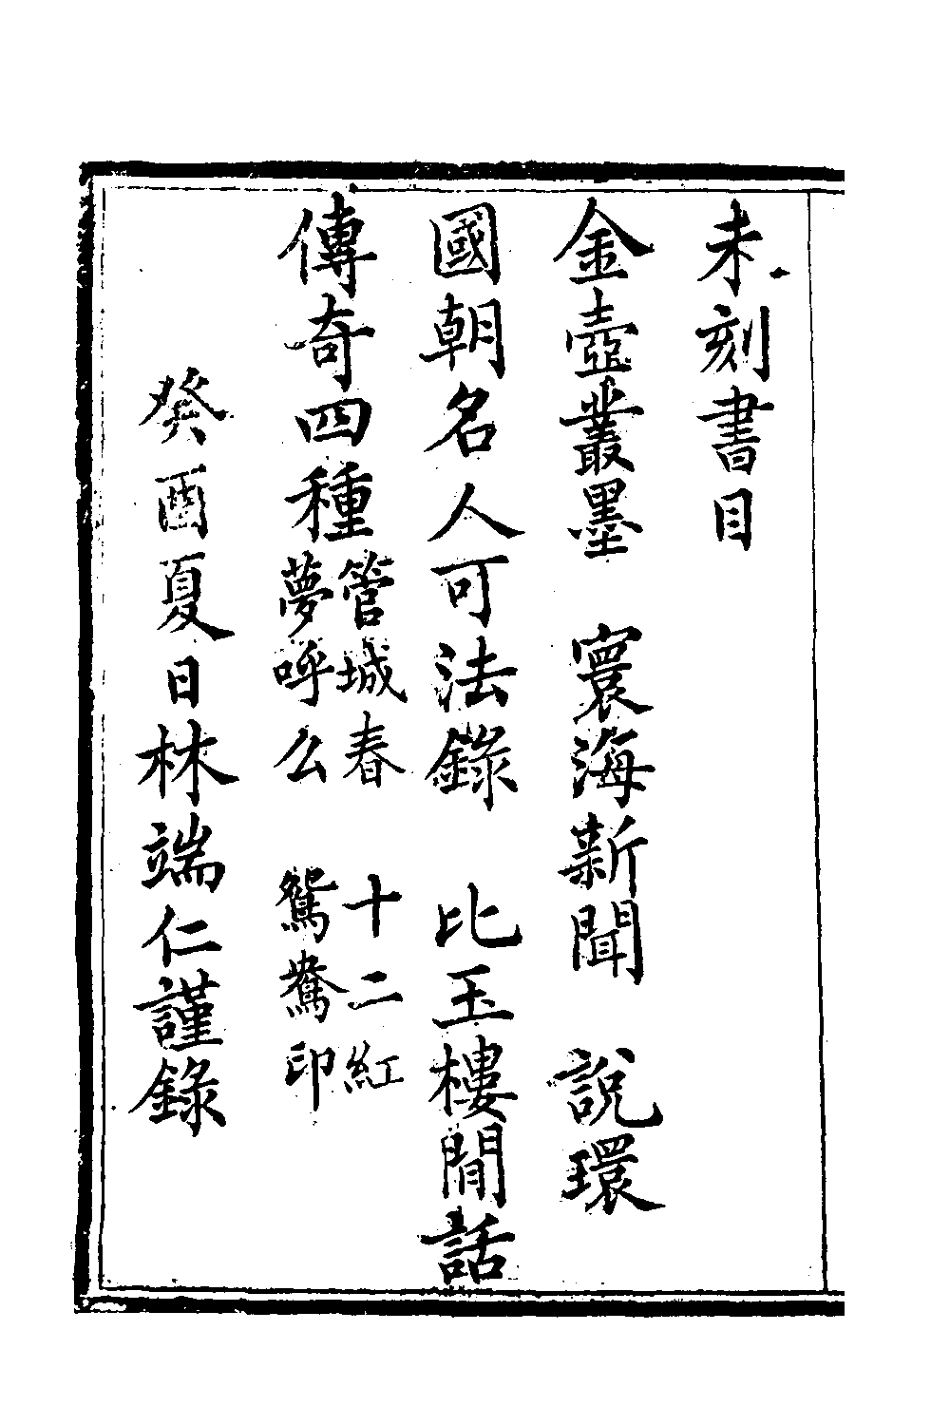 未刻書目
金壺叢墨　寰海新聞　說環
國朝名人可法錄　比玉樓閒話
傳奇四種管城春　十二紅
夢呼么　鴛鴦印
癸酉夏日林端仁謹錄